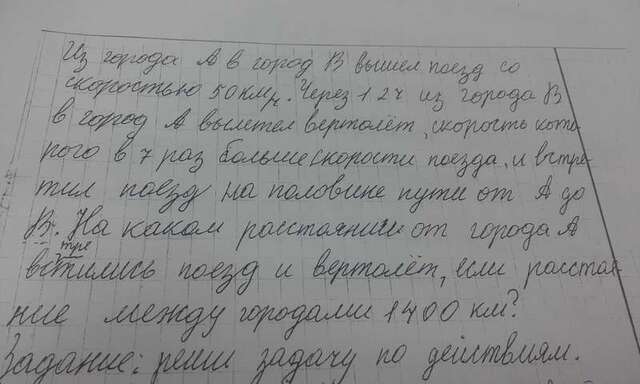 Из города А в город В вышел поезд со
скоростью 50 км/ч. Через 12ч из города В
в город А вылетел вертолёт, скорость кото-
рого в 7 раз больше скорости поезда, и встре-
тил поезд на половине пути от А до
В. На каком расстоянии от города А
встретились поезд и вертолёт, если расстоя-
ние между городами 1400 км?
Задание: реши задачу по действиям.